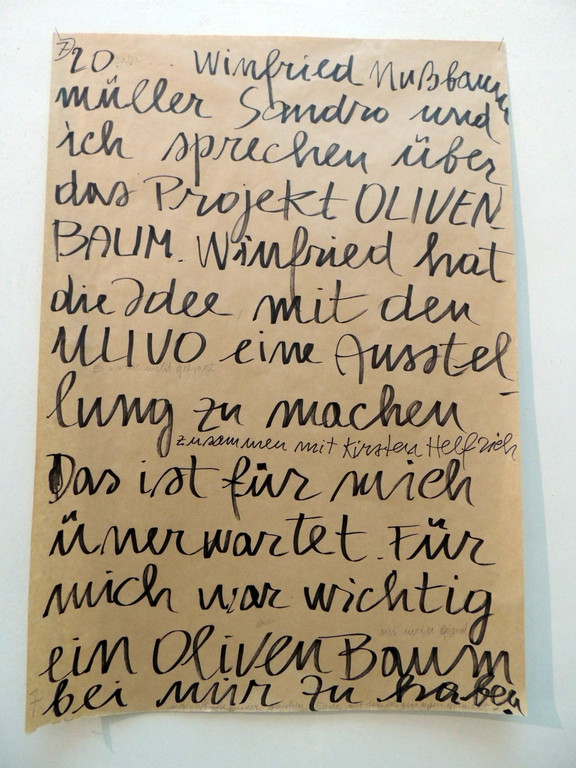 7
20 Winfried Nußbaum
müller Sandro und
ich sprechen über
das Projekt OLIVEN
BAUM. Winfried hat
die Idee mit den
ULIVO eine Ausstel-
lung zu machen
zusammen mit Kirsten Helfrich
Das ist für mich
ünerwartet. Für
mich war wichtig
ein OlivenBaum
bei mir zu haben
7